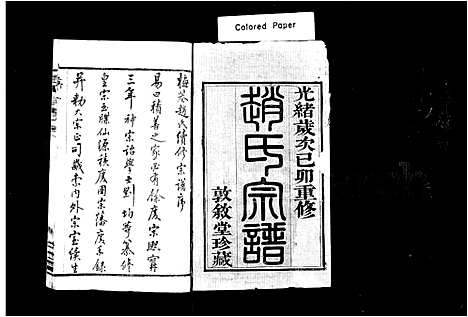 Colored Paper
光緒歲次己卯重修
趙氏宗譜
敦敘堂珍藏
趙氏續修宗譜序
易曰積善之家必有餘慶宋熙寧
三年神宗詔學士劉均等纂修
皇宗玉牒仙源積慶圖宗藩慶系錄
并勅大宗正司歲索內外宗室續生